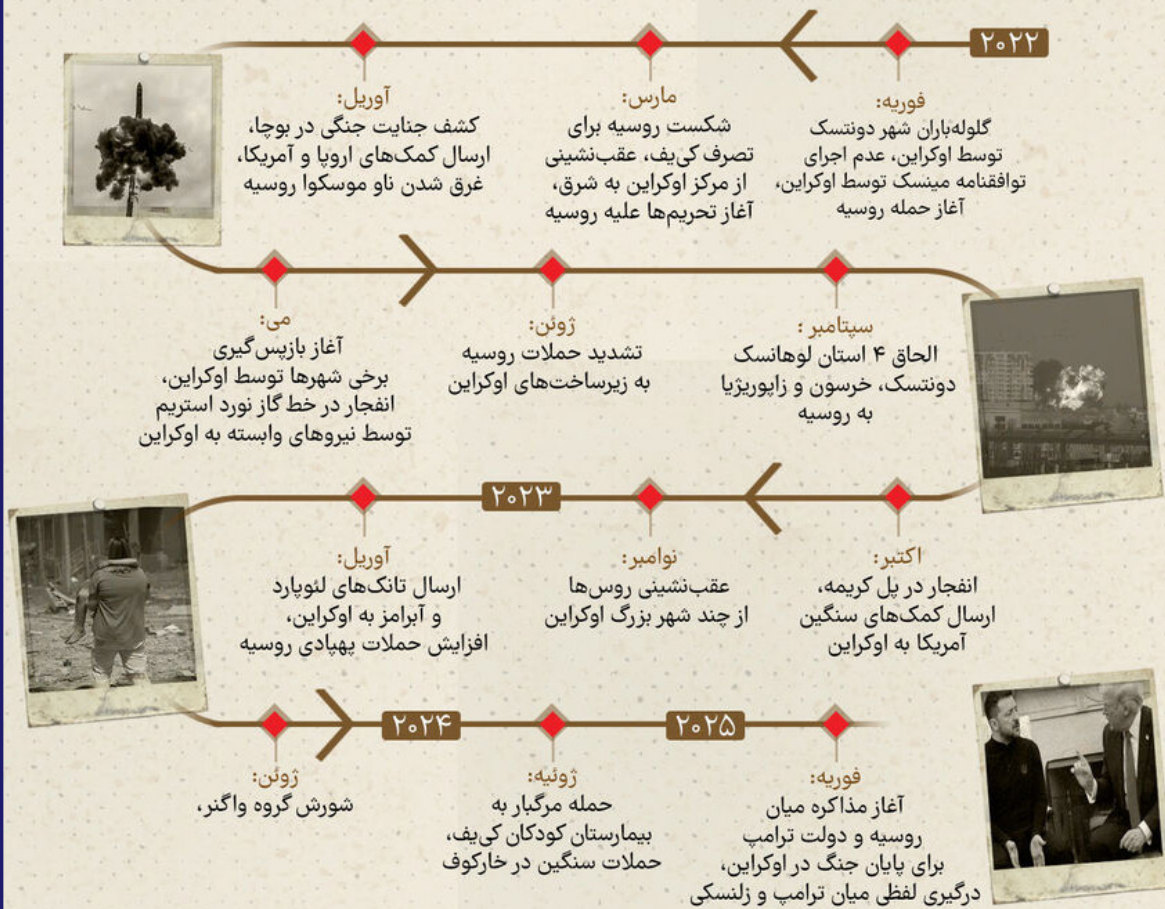 ۲۰۲۲
فوریه:
گلوله‌باران شهر دونتسک
توسط اوکراین، عدم اجرای
توافقنامه مینسک توسط اوکراین،
آغاز حمله روسیه
مارس:
شکست روسیه برای
تصرف کی‌یف، عقب‌نشینی
از مرکز اوکراین به شرق،
آغاز تحریم‌ها علیه روسیه
آوریل:
کشف جنایت جنگی در بوچا،
ارسال کمک‌های اروپا و آمریکا،
غرق شدن ناو موسکوا روسیه
می:
آغاز بازپس‌گیری
برخی شهرها توسط اوکراین،
انفجار در خط گاز نورد استریم
توسط نیروهای وابسته به اوکراین
ژوئن:
تشدید حملات روسیه
به زیرساخت‌های اوکراین
سپتامبر :
الحاق ۴ استان لوهانسک
دونتسک، خرسون و زاپوریژیا
به روسیه
اکتبر:
انفجار در پل کریمه،
ارسال کمک‌های سنگین
آمریکا به اوکراین
نوامبر:
عقب‌نشینی روس‌ها
از چند شهر بزرگ اوکراین
۲۰۲۳
آوریل:
ارسال تانک‌های لئوپارد
و آبرامز به اوکراین،
افزایش حملات پهپادی روسیه
ژوئن:
شورش گروه واگنر،
۲۰۲۴
ژوئیه:
حمله مرگبار به
بیمارستان کودکان کی‌یف،
حملات سنگین در خارکوف
۲۰۲۵
فوریه:
آغاز مذاکره میان
روسیه و دولت ترامپ
برای پایان جنگ در اوکراین،
درگیری لفظی میان ترامپ و زلنسکی